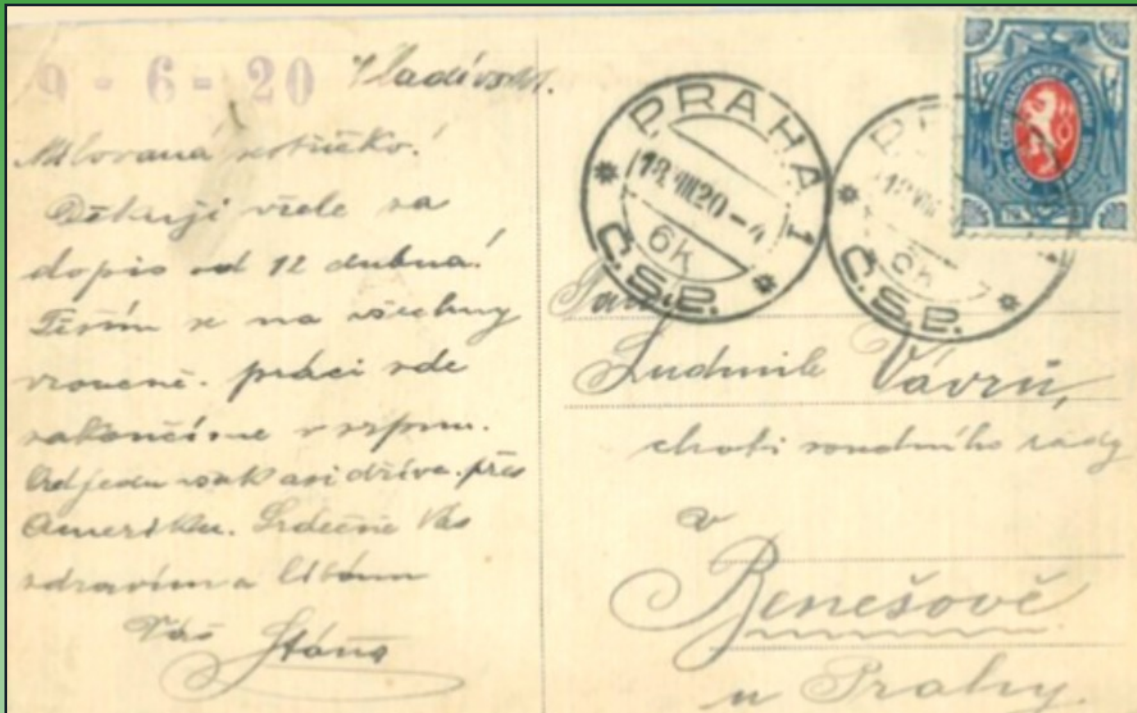 9 - 6 - 20 Vladivost.
Milovaná sestřičko!
Děkuji vřele za
dopis od 12 dubna!
Těším se na všechny
vroucně. práci zde
zakončíme v srpnu.
Odjedu však asi dříve. přes
Ameriku. Srdečně Vás
zdravím a líbám
Váš Stáňa
PRAHA 1
18.VIII.20-4
6K
Č.S.P.
18.VIII
6K
Č.S.P.
Paní
Ludmile Vávrů,
choti soudního rady
v
Benešově
u Prahy